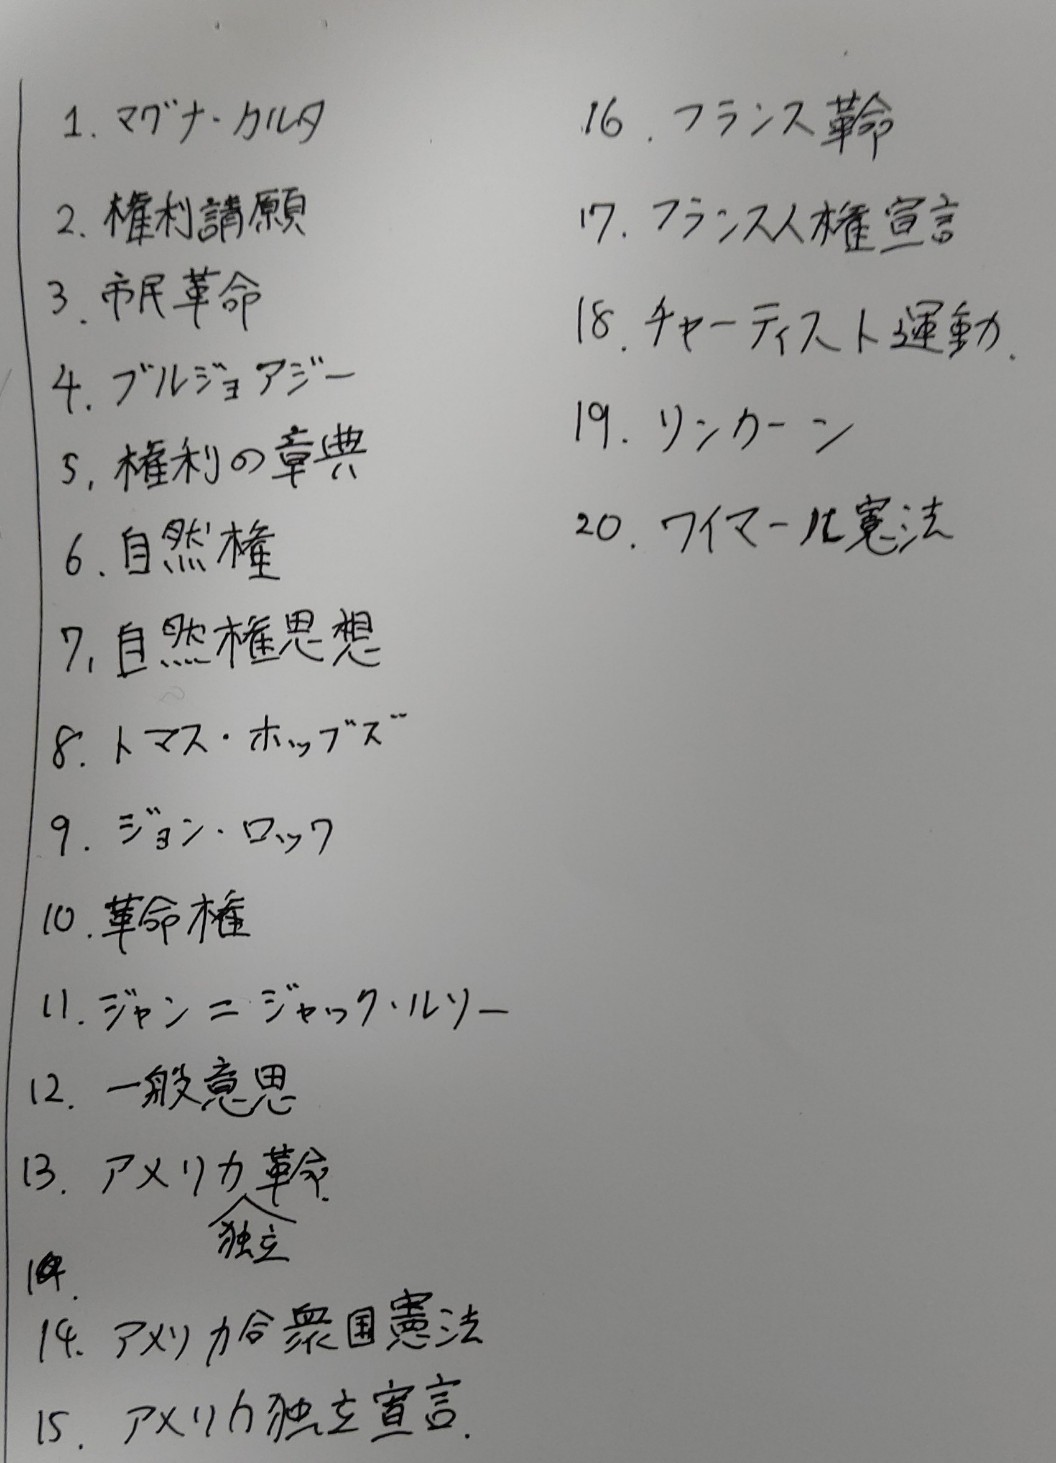 1. マグナ・カルタ
2. 権利請願
3. 市民革命
4. ブルジョアジー
5. 権利の章典
6. 自然権
7. 自然権思想
8. トマス・ホッブズ
9. ジョン・ロック
10. 革命権
11. ジャン＝ジャック・ルソー
12. 一般意思
13. アメリカ革命
独立
14.
14. アメリカ合衆国憲法
15. アメリカ独立宣言.
16. フランス革命
17. フランス人権宣言
18. チャーティスト運動.
19. リンカーン
20. ワイマール憲法